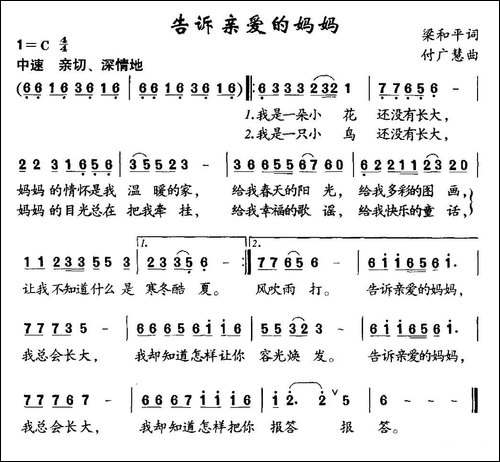 告诉亲爱的妈妈
1=C 4/4
梁和平词
中速 亲切、深情地
付广慧曲
(6 6 1 6 3 6 1 6 6 6 1 6 3 6 1 6):‖:6 3 3 3 3 2 3 2 1 | 7 7 6 5 6 - |
1.我是一朵小 花 还没有长大,
2.我是一只小 鸟 还没有长大,
2 2 3 1 6 5 6 | 3 5 5 2 3 - | 3 6 6 5 5 0 6 5 3 | 6 2 2 1 1 2 3 2 0 |
妈妈的情怀是我 温 暖的家, 给我春天的阳 光, 给我多彩的图 画,
妈妈的目光总在 把我牵 挂, 给我幸福的歌 谣, 给我快乐的童 话,
1 1 2 3 3 5 5 3 | 1. 2 3 3 5 6 - :‖ 2. 7 7 6 5 6 - | 6 1 6 1 6 5 6 1. |
让我不知道什么 是 寒冬酷 夏。 风吹雨 打。 告诉亲爱的妈妈,
7 7 7 3 5 - | 6 6 6 5 6 1 1 6 | 5 5 3 2 3 - | 6 1 1 1 6 5 6 1. |
我总会长大, 我却知道怎样让你 容光焕 发。 告诉亲爱的妈妈,
7 7 7 6 7 - | 6 6 6 7 1 1 1 1 | 1 2. 2 1 2 ∨ 5 | 6 - - - ‖
我总会长大, 我却知道怎样把你 报答 报 答。